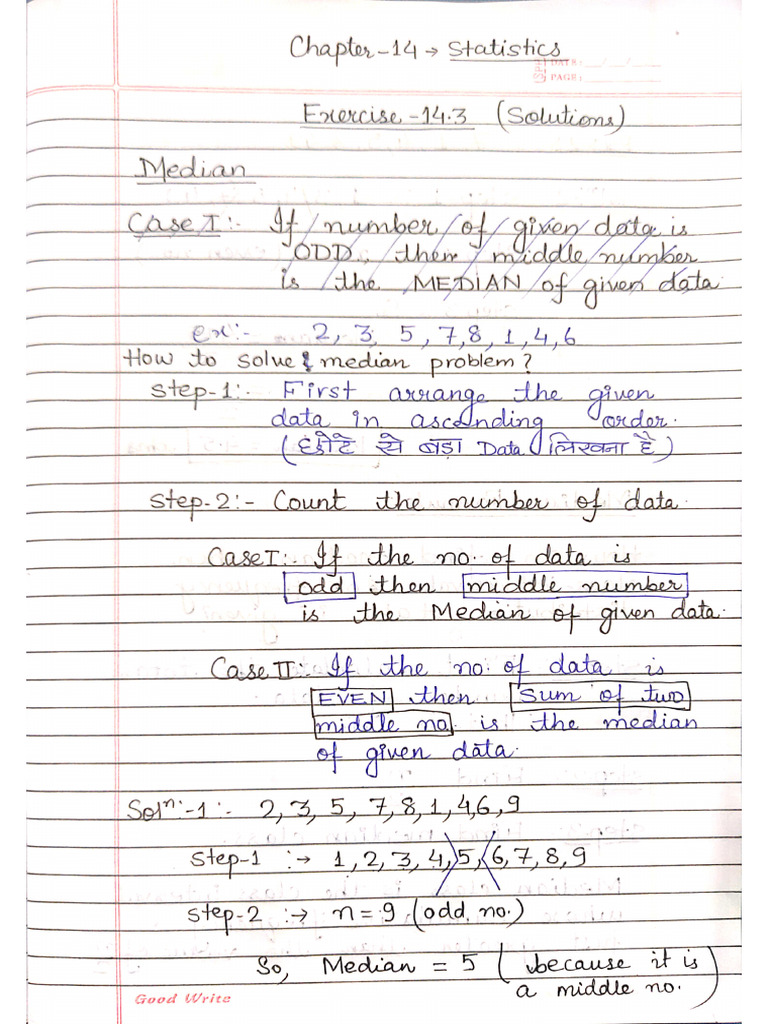 Chapter-14 → Statistics
DATE: __/__/__
PAGE:
Exercise-14.3 (Solutions)
Median
Case I :- If number of given data is
ODD, then middle number
is the MEDIAN of given data
ex:- 2, 3, 5, 7, 8, 1, 4, 6
How to solve median problem?
Step-1:- First arrange the given
data in ascending order.
(छोटे से बड़ा Data लिखना है)
Step-2:- Count the number of data.
Case I:- If the no. of data is
odd then middle number
is the Median of given data.
Case II:- If the no. of data is
EVEN then Sum of two
middle no. is the median
of given data.
Solⁿ:-1:- 2, 3, 5, 7, 8, 1, 4, 6, 9
Step-1 :→ 1, 2, 3, 4, 5, 6, 7, 8, 9
Step-2 :→ n = 9 (odd no.)
So, Median = 5 (because it is
a middle no.)
Good Write